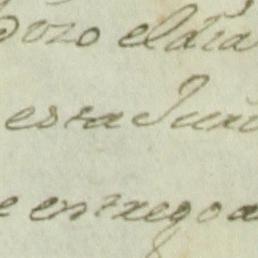 pozo el dia
esta Jun
e entrego a